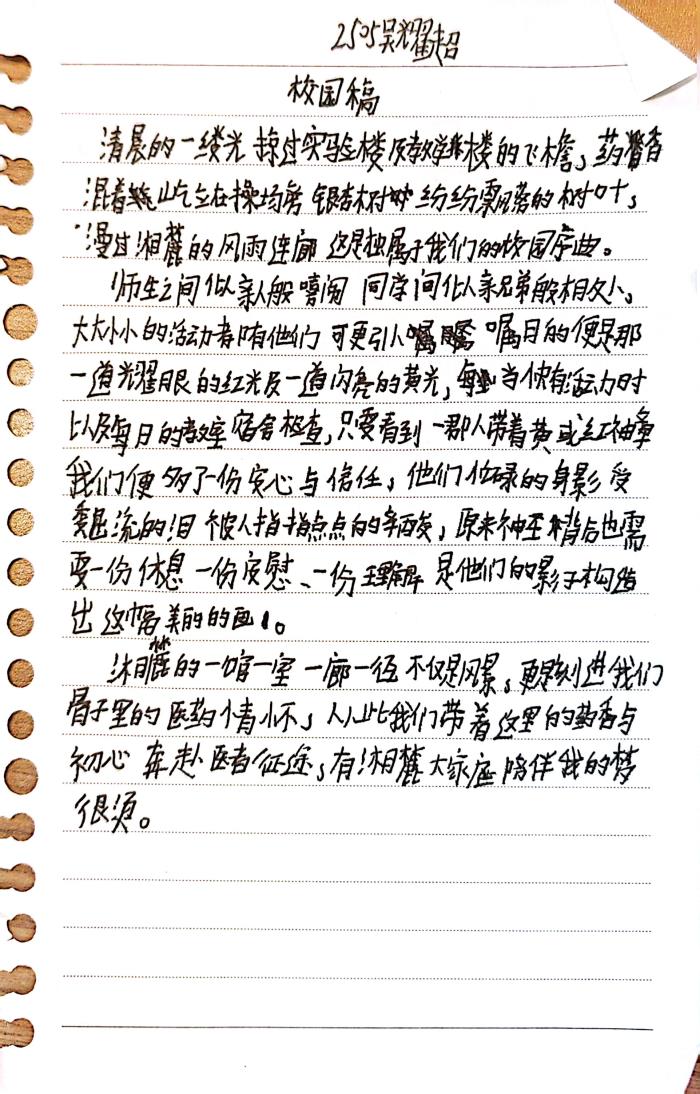 2505吴耀超
校园稿
清晨的一缕光 掠过实验楼及教学楼的飞檐，药香
混着屹立在操场旁 银杏树 纷纷飘落的树叶，
漫过湘麓的风雨连廊 这是独属于我们的校园序曲。
师生之间似亲人般嘻闹 同学间似亲兄弟般相处，
大大小小的活动都有他们 可更引人瞩目的便是那
一道光耀眼的红光及一道闪亮的黄光，每当有活动时
以及每日的教室宿舍检查，只要看到一群人带着黄或红袖章
我们便多了一份安心与信任，他们忙碌的身影 受
委屈流的泪 被人指指点点的的辛酸，原来神圣背后也需
要一份休息 一份安慰、一份理解 是他们的影子构造
出这幅美的的画。
湘麓的一馆一室 一廊一径 不仅是风景，更是刻进我们
骨子里的医药情怀，从此我们带着这里的药香与
初心 奔赴医者征途，有湘麓大家庭陪伴我的梦
很须。